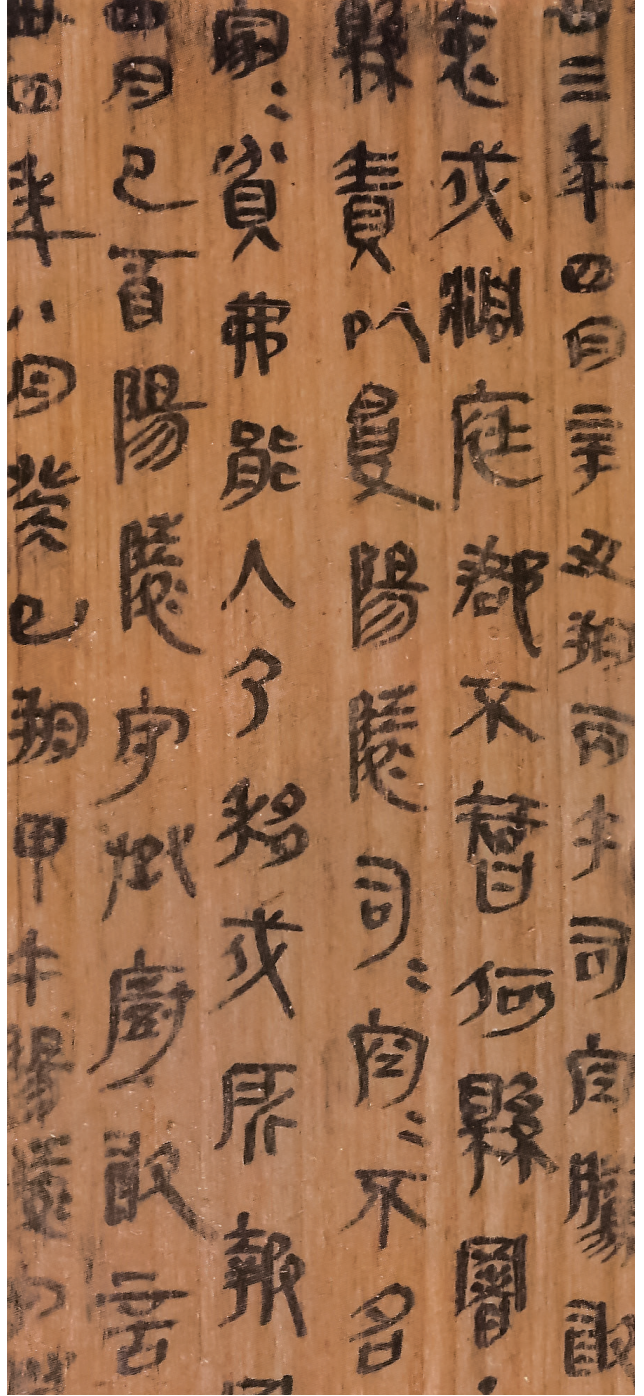 卅三年四月辛丑朔丙午司空騰敢
戍洞庭郡不智何縣署·
縣責以受陽陵司=空=不名
家=貧弗能入乃移戍所報
四月己酉陽陵守丞廚敢言
卅四年八月癸巳朔甲午陽陵守